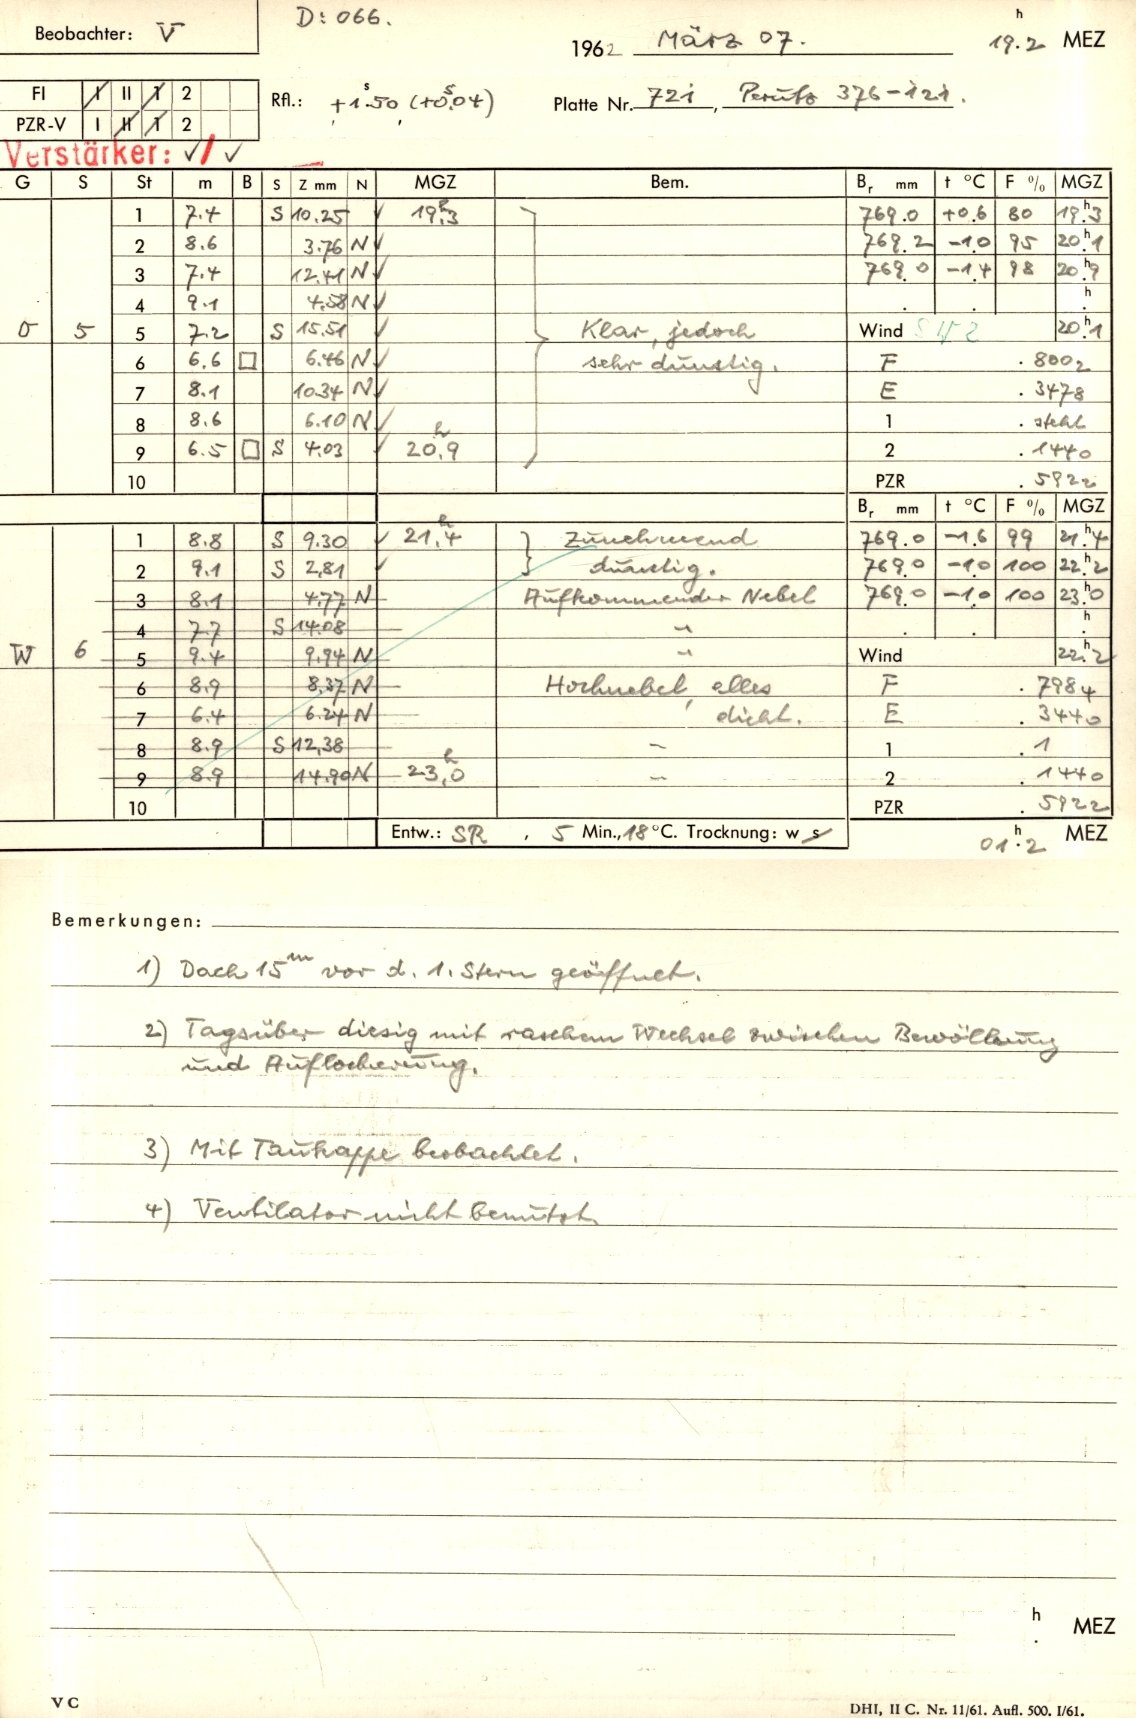 D: 066.
Beobachter: V
1962 März 07. 19.2 h MEZ
FI I II 1 2
PZR-V I II 1 2
Rfl.: +1.50 s (+0.04 s)
Platte Nr. 721, Perutz 376-121.
Verstärker: ✓/✓
G S St m B S Z mm N MGZ Bem. Br mm t °C F % MGZ
1 7.4 S 10.25 ✓ 19.3 h 769.0 +0.6 80 19.3 h
2 8.6 3.76 N ✓ 769.2 -1.0 95 20.1 h
3 7.4 12.41 N ✓ 769.0 -1.4 98 20.9 h
4 9.1 4.58 N ✓ . . h
O 5 5 7.2 S 15.51 ✓ Klar, jedoch Wind SW 2 20.1 h
6 6.6 □ 6.46 N ✓ sehr dunstig. F .8002
7 8.1 10.34 N ✓ E .3478
8 8.6 6.10 N ✓ 1 . steht
9 6.5 □ S 4.03 ✓ 20.9 h 2 .1440
10 PZR .5922
Br mm t °C F % MGZ
1 8.8 S 9.30 ✓ 21.4 h Zunehmend 769.0 -1.6 99 21.4 h
2 9.1 S 2.81 ✓ dunstig. 769.0 -1.0 100 22.2 h
3 8.1 4.77 N Aufkommender Nebel 769.0 -1.0 100 23.0 h
4 7.7 S 14.08 " . . h
W 6 5 9.4 9.94 N " Wind 22.2 h
6 8.9 8.37 N Hochnebel, alles F .7984
7 6.4 6.24 N dicht. E .3440
8 8.9 S 12.38 " 1 .1
9 8.9 14.90 N 23.0 h " 2 .1440
10 PZR .5922
Entw.: SR, 5 Min., 18 °C. Trocknung: w s 01.2 h MEZ
Bemerkungen:
1) Dach 15 m vor d. 1. Stern geöffnet.
2) Tagsüber diesig mit raschem Wechsel zwischen Bewölkung
und Auflockerung.
3) Mit Taukappe beobachtet.
4) Ventilator nicht benutzt.
h . MEZ
V C
DHI, II C. Nr. 11/61. Aufl. 500. I/61.